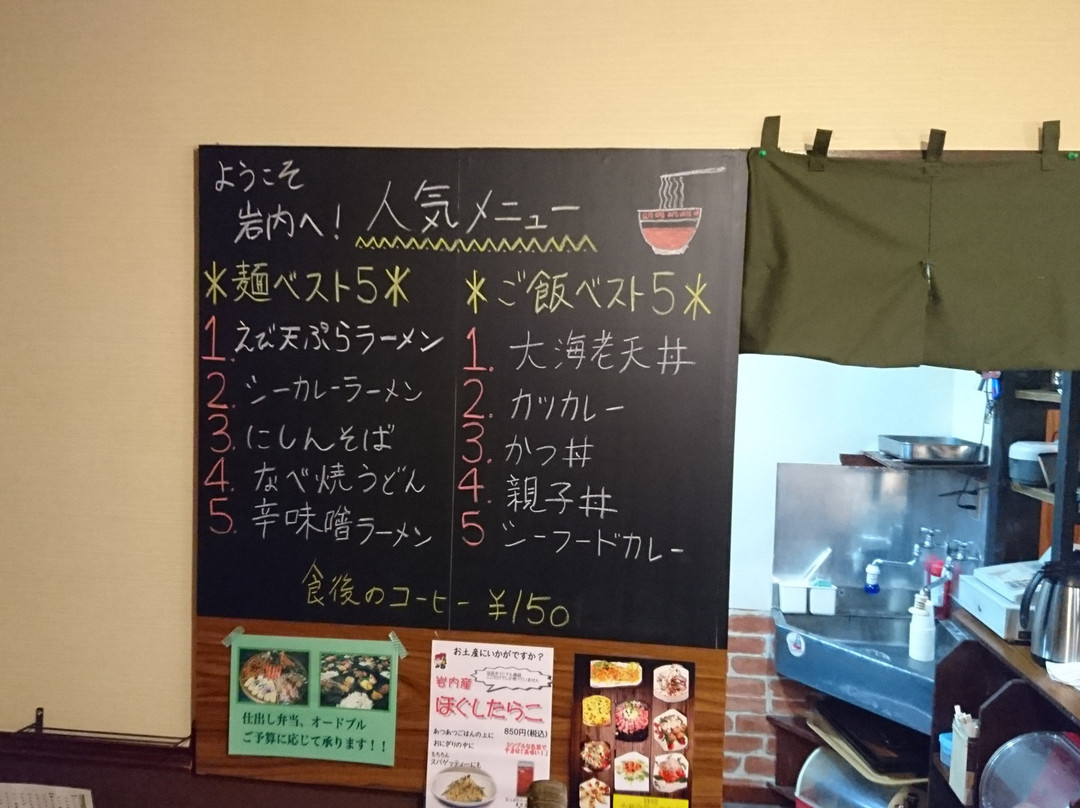 ようこそ
岩内へ!
人気メニュー
*麺ベスト5*
1. えび天ぷらラーメン
2. シーカレーラーメン
3. にしんそば
4. なべ焼うどん
5. 辛味噌ラーメン
*ご飯ベスト5*
1. 大海老天丼
2. カツカレー
3. かつ丼
4. 親子丼
5 シーフードカレー
食後のコーヒー ¥150
仕出し弁当、オードブル
ご予算に応じて承ります!!
お土産にいかがですか?
岩内産
ほぐしたらこ
850円(税込)
あつあつごはんの上に
おにぎりの中に
もちろん
スパゲッティーにも